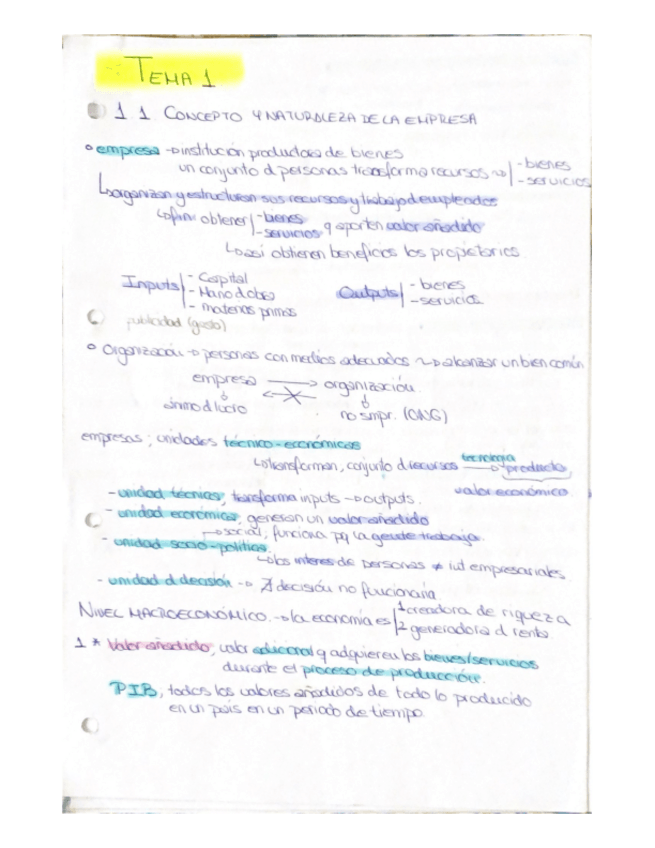 TEMA 1
1.1. CONCEPTO Y NATURALEZA DE LA EMPRESA
empresa → institución productora de bienes
un conjunto d personas transforma recursos → - bienes
- servicios
organizan y estructuran sus recursos y trabajo de empleados
fin: obtener - bienes
- servicios q aporten valor añadido
así obtienen beneficios los propietarios
Inputs - Capital
- Mano d obra
- materias primas
Outputs - bienes
- servicios
publicidad (gasto)
Organización → personas con medios adecuados → alcanzar un bien común
empresa → organización
ánimo d lucro no smpr. (ONG)
empresas; unidades técnico-económicas
transforman, conjunto d recursos tecnología → producto,
valor económico
- unidad técnica, transforma inputs → outputs.
- unidad económica, generan un valor añadido
social, funciona pq la gente trabaja.
- unidad socio-política.
los interes de personas ≠ empresariales.
- unidad d decisión → ∄ decisión no funcionaría
NIVEL MACROECONÓMICO. → la economía es 1 creadora de riqueza
2 generadora d renta
1 * Valor añadido, valor adicional q adquieren los bienes/servicios
durante el proceso de producción.
PIB, todos los valores añadidos de todo lo producido
en un país en un periodo de tiempo